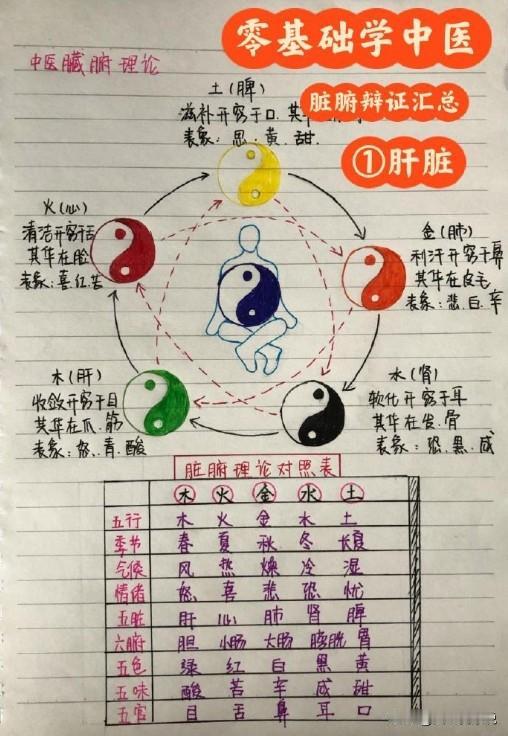 零基础学中医
脏腑辩证汇总
①肝脏
中医臓腑理论
土(脾)
滋补开窍于口.其华
表象:思.黄.甜.
火(心)
清洁开窍于舌
其华在脸
表象:喜.红.苦
金(肺)
利汗开窍于鼻
其华在皮毛
表象:悲.白.辛
木(肝)
收敛开窍于目
其华在爪.筋
表象:怒.青.酸
水(肾)
软化开窍于耳
其华在发.骨
表象:恐.黑.咸
脏腑理论对照表
木 火 金 水 土
五行 木 火 金 水 土
季节 春 夏 秋 冬 长夏
气候 风 热 燥 冷 湿
情绪 怒 喜 悲 恐 忧
五脏 肝 心 肺 肾 脾
六腑 胆 小肠 大肠 膀胱 胃
五色 绿 红 白 黑 黄
五味 酸 苦 辛 咸 甜
五官 目 舌 鼻 耳 口